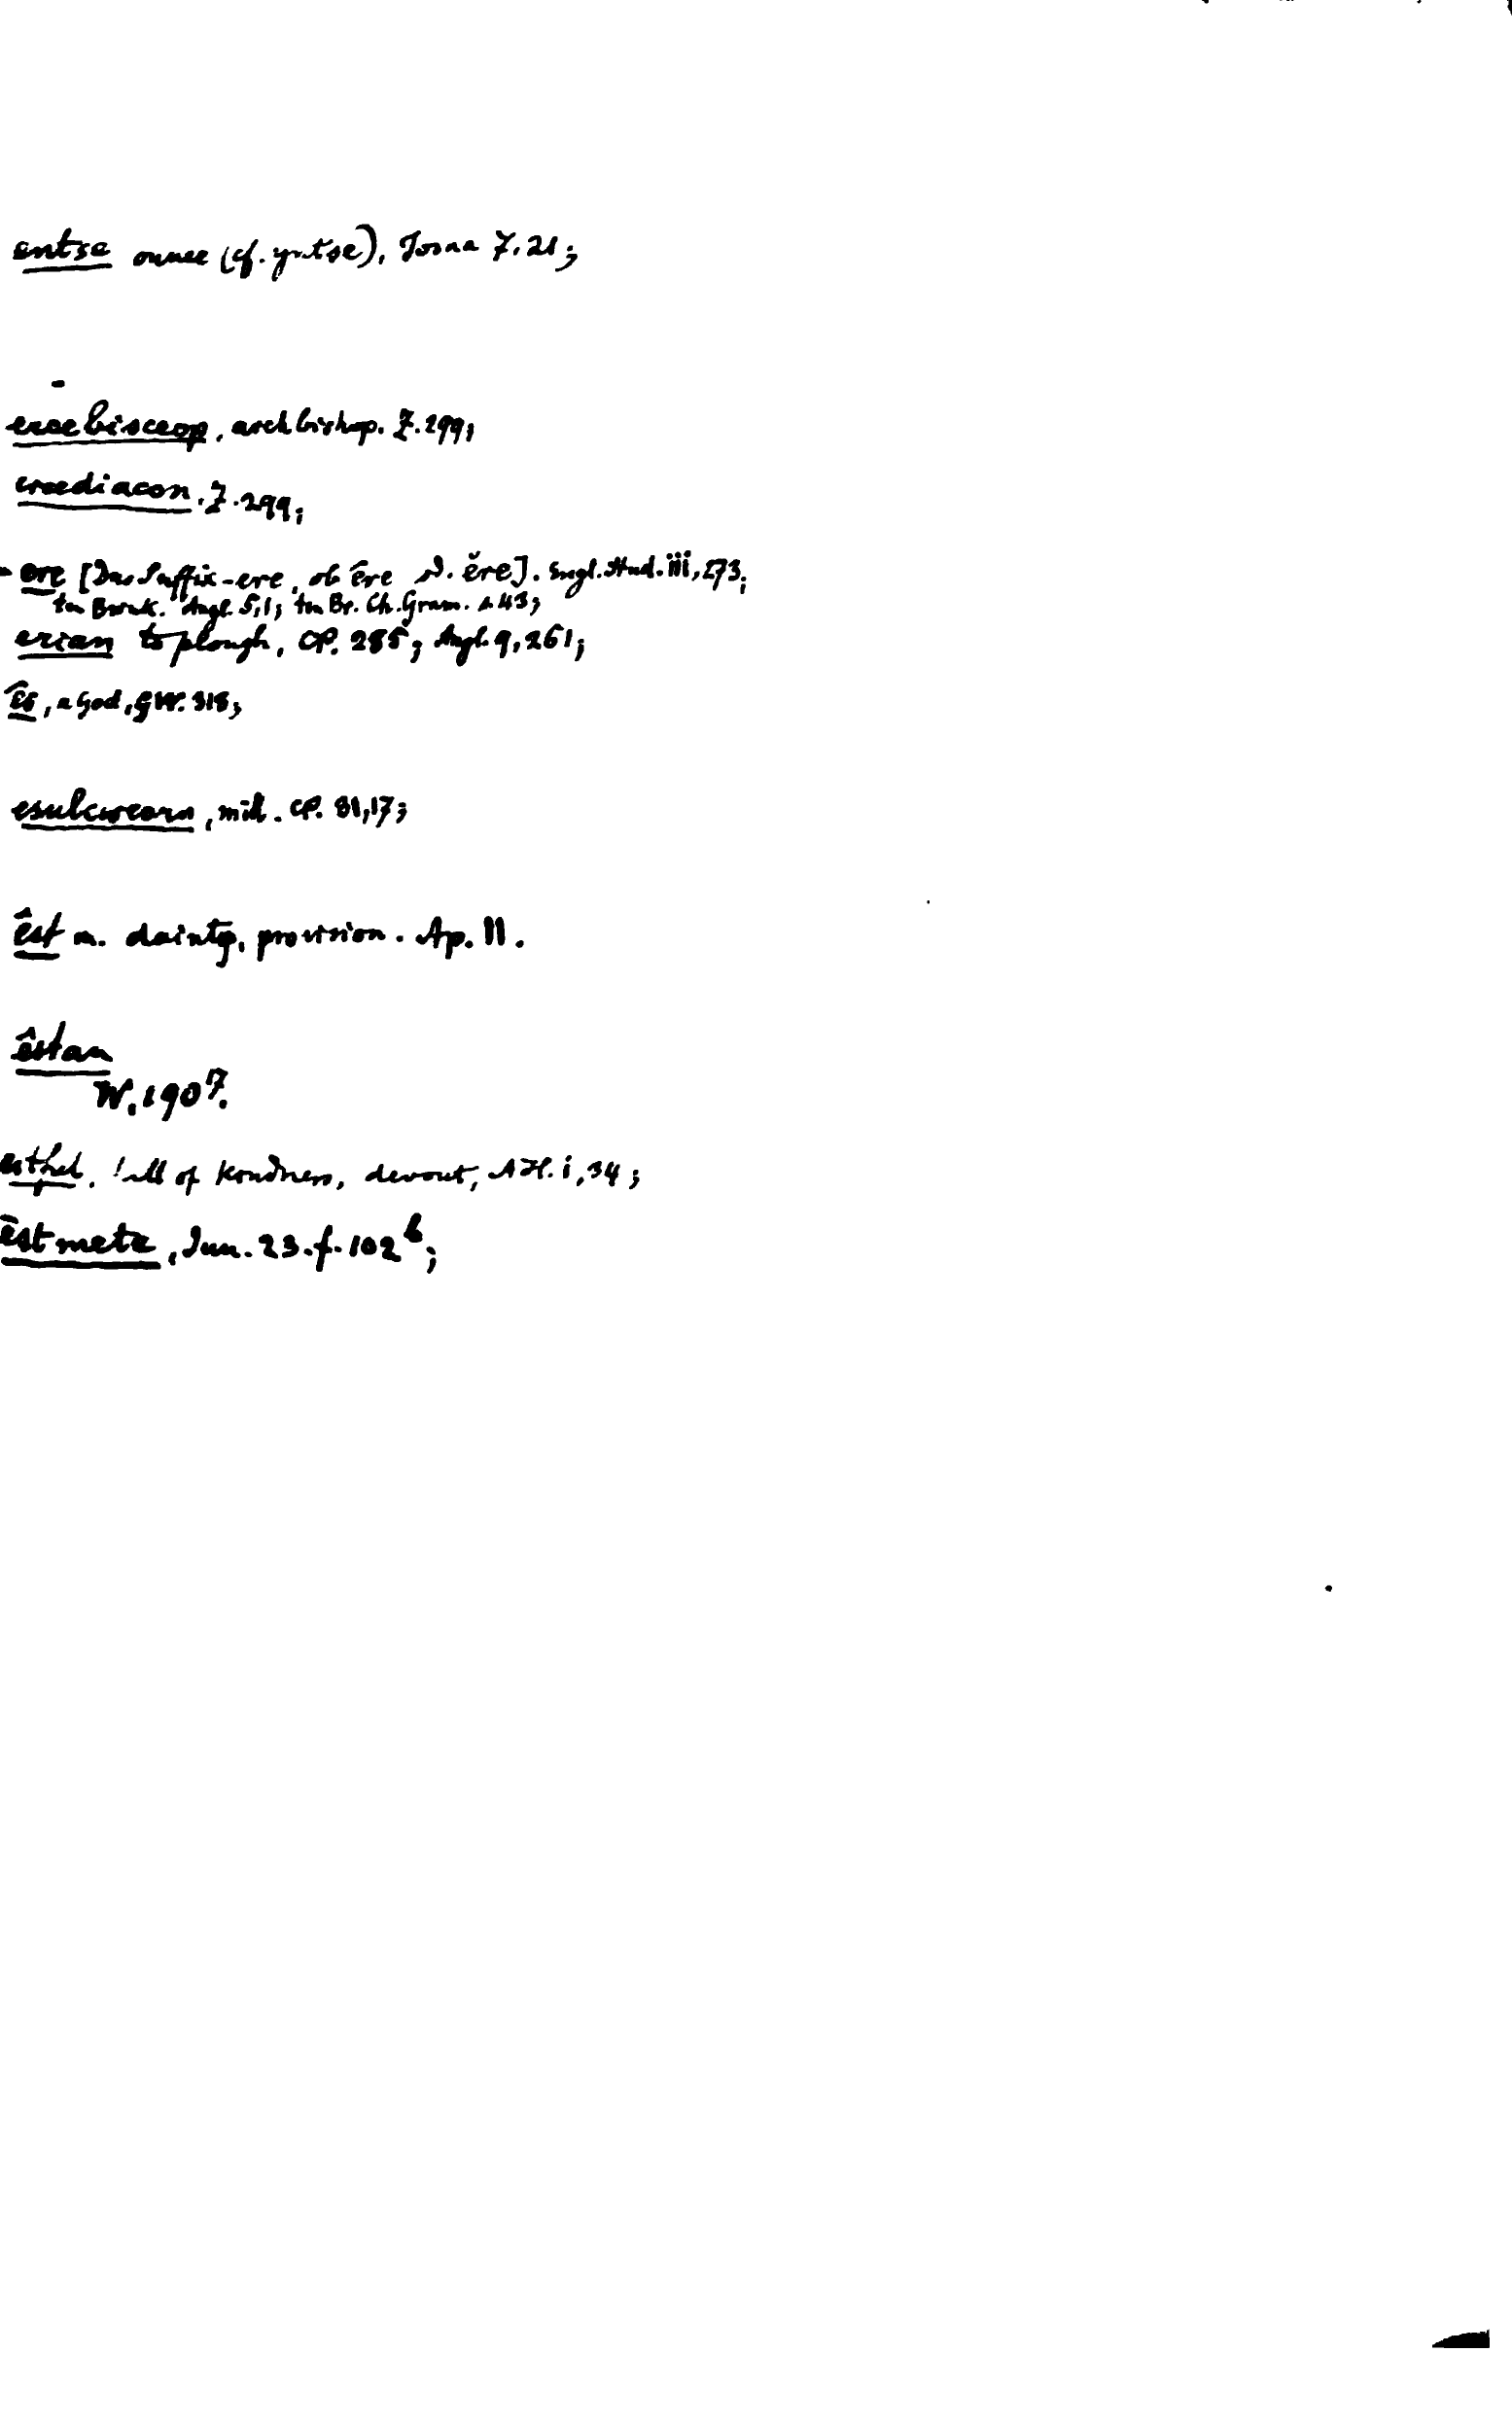 entse ounce (cf. yntse), Jos̄na 7.21;
ercebisceop, archbishop. Z. 299;
ercediacon. Z. 299;
- ere [Das Suffix -ere, ob êre od. ĕre]. Engl. Stud. iii, 273;
ten Brink. Angl. 5,1; ten Br. Ch. Gram. s. 43;
erian to plough, CP. 285; Angl. 9, 261;
ês, a God, GW. 318;
esulcweorn, mill. CP. 31,17;
êst m. dainty, provision. Ap. 11.
êstan
W. 190⁷.
estful. full of kindness, devout, AH. i, 34;
êstmete, Jun. 23. f. 102ᵇ;